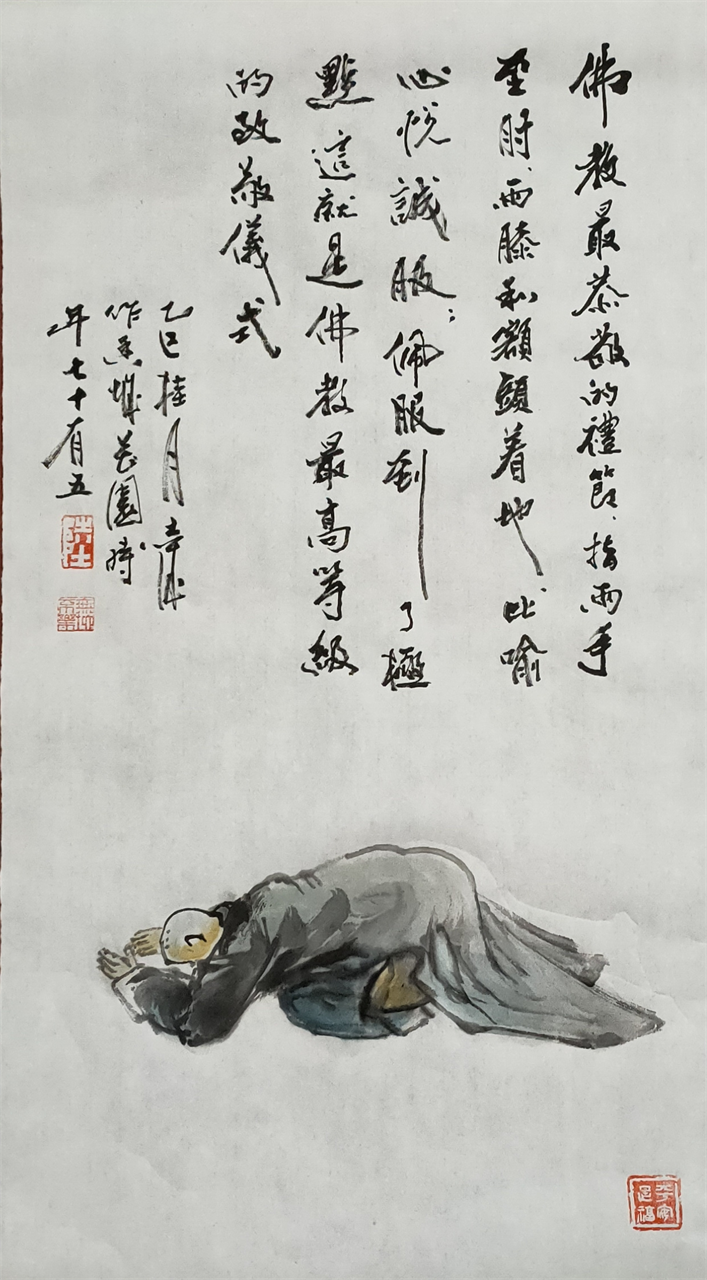 佛教最恭敬的禮節、指兩手
至肘、兩膝和額頭着地、比喻
心悅誠服;佩服到了極
點這就是佛教最高等級
的致敬儀式
乙巳桂月
作 城花園時
年七十有五
平安是福